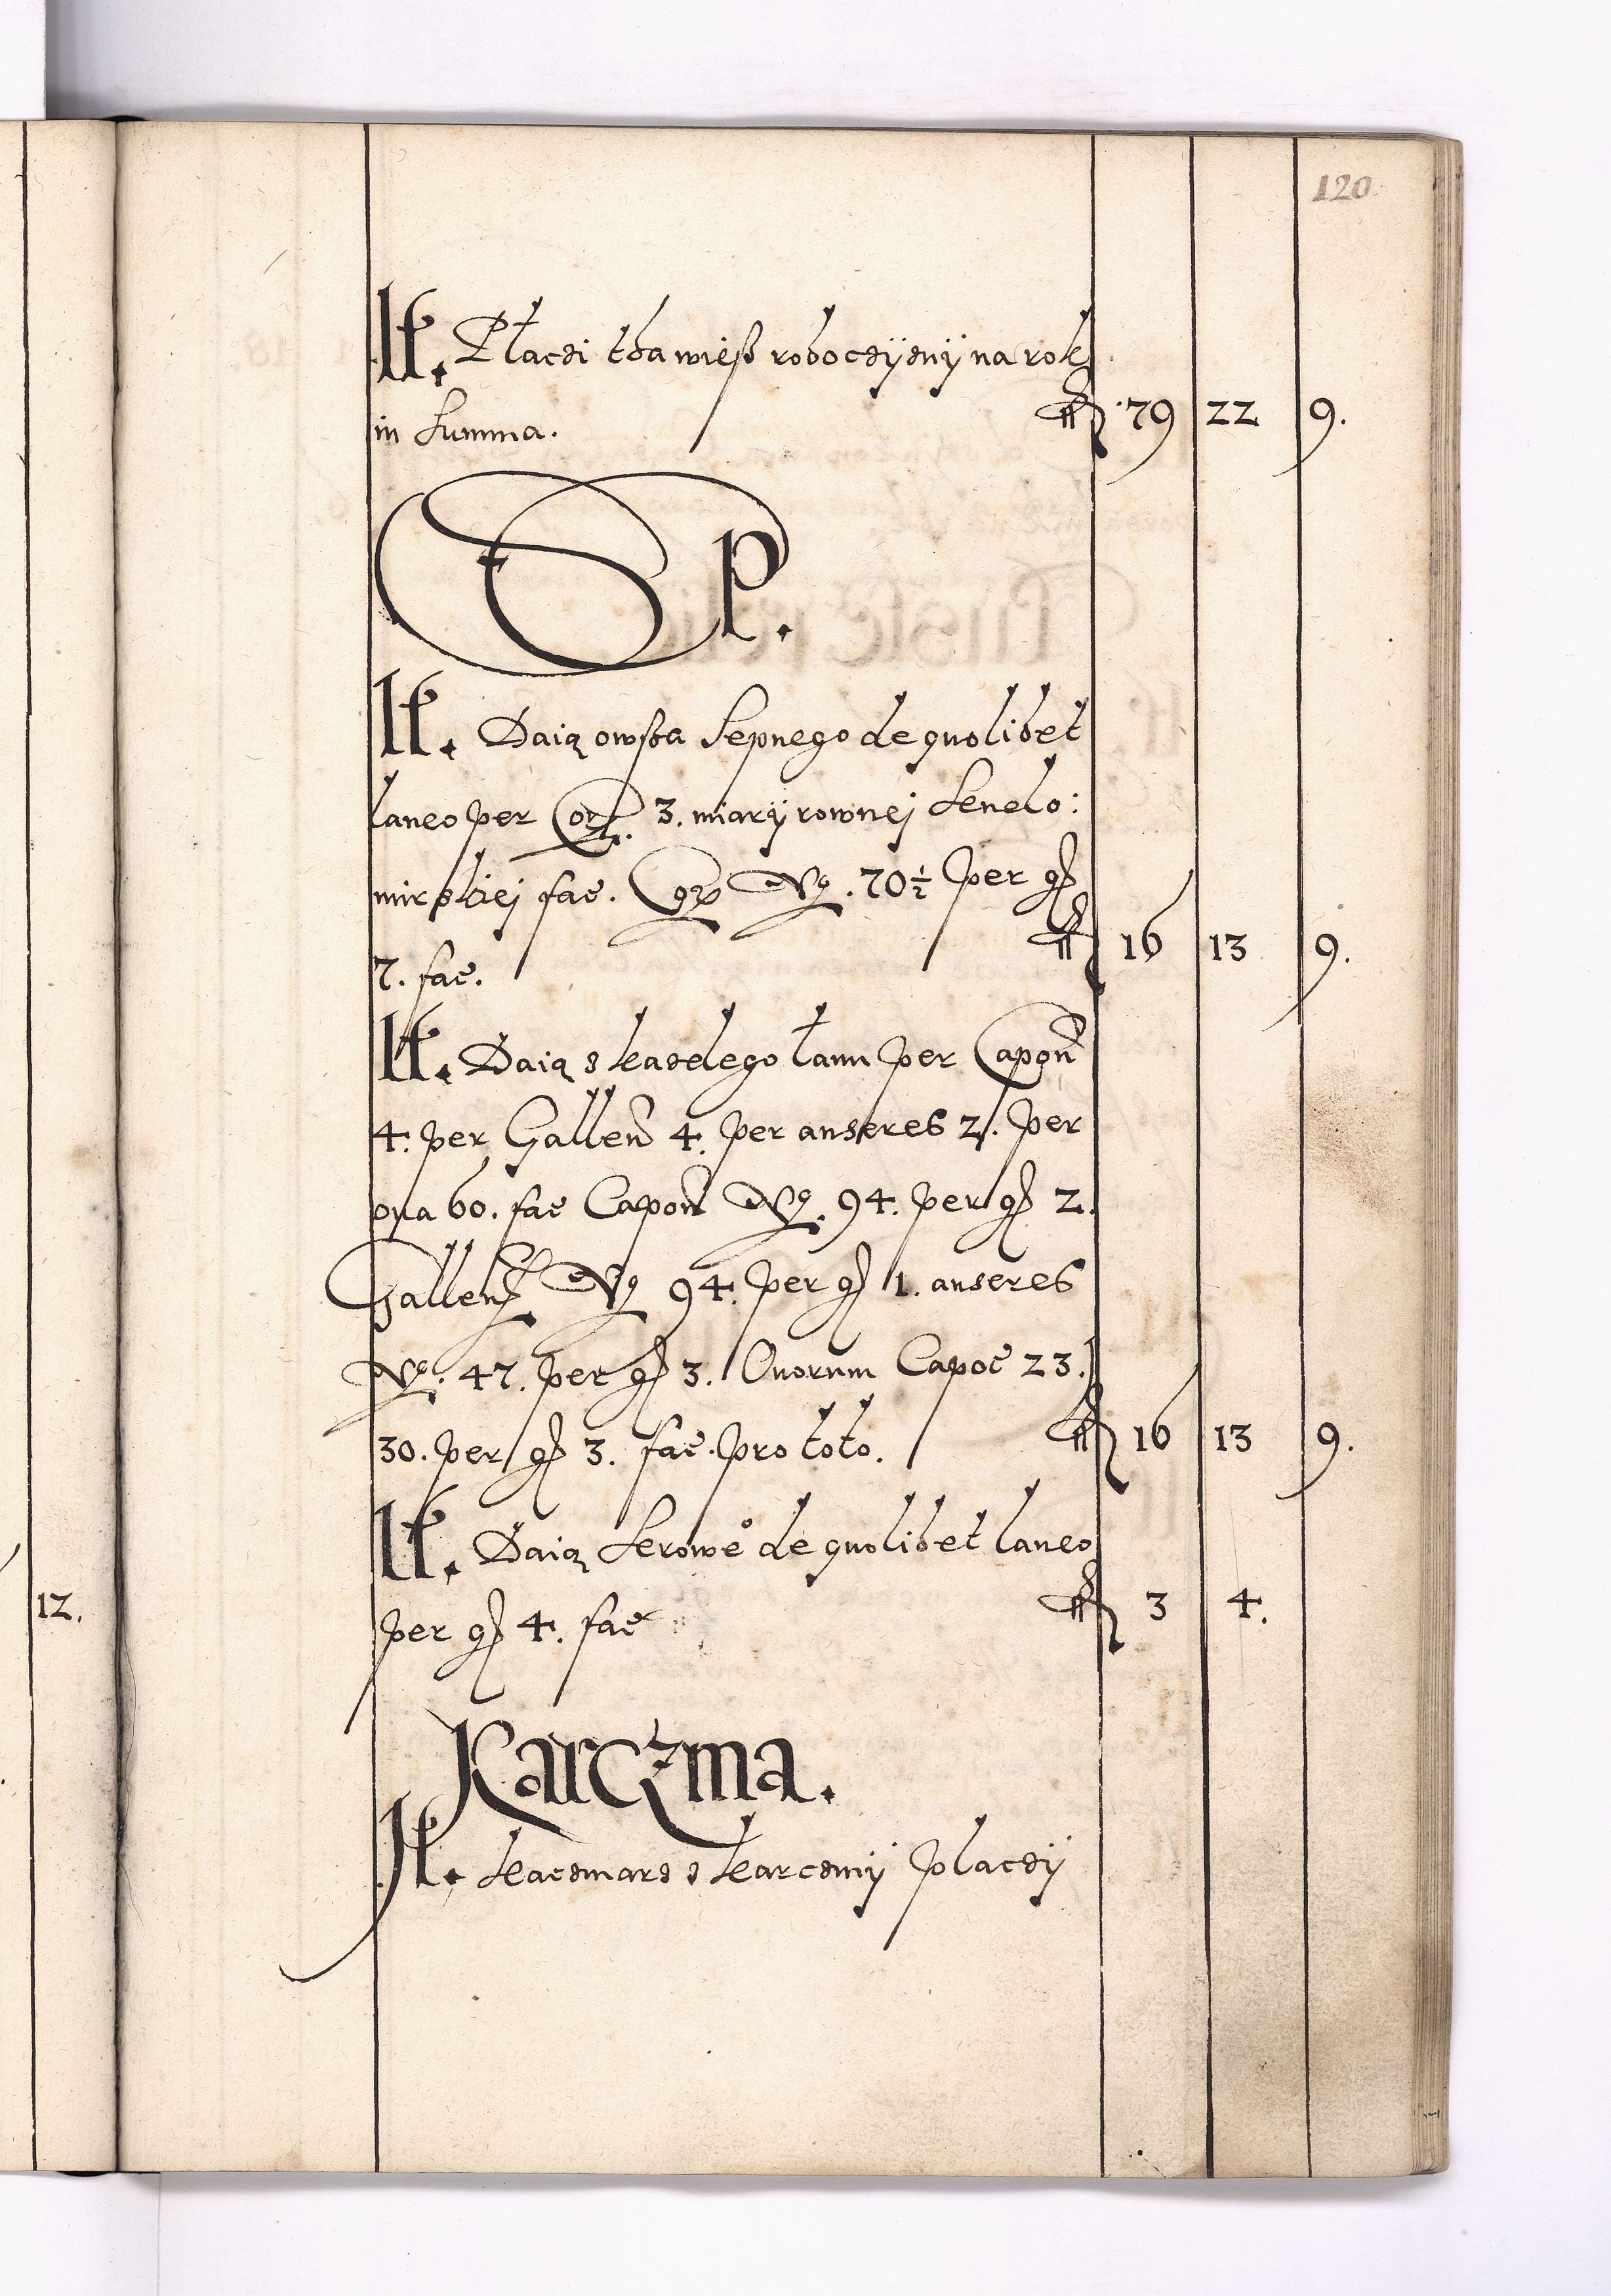 120.
It. Płaczi tha wieß robocżÿznÿ na rok
in Summa. fl 79 22 9.
SP.
It. Daią owssa Sepnego de quolibet
laneo per Cor. 3. miarÿ rownej Sendo:
mirskiej fac. Cor No. 70½ per gr
7. fac. fl 16 13 9.
It. Daią z kazdego łanu per Capon
4. per Gallen 4. per anseres 2. per
oua 60. fac Capon No. 94. per gr 2.
Gallen No 94. per gr 1. anseres
No. 47. per gr 3. Ouorum Capoc 23.
30. per gr 3. fac. pro toto. fl 16 13 9.
It. Daią Serowe° de quolibet laneo
per gr 4. fac fl 3 4.
Karczma.
It. kaczmarz z karczmÿ placzÿ
12.